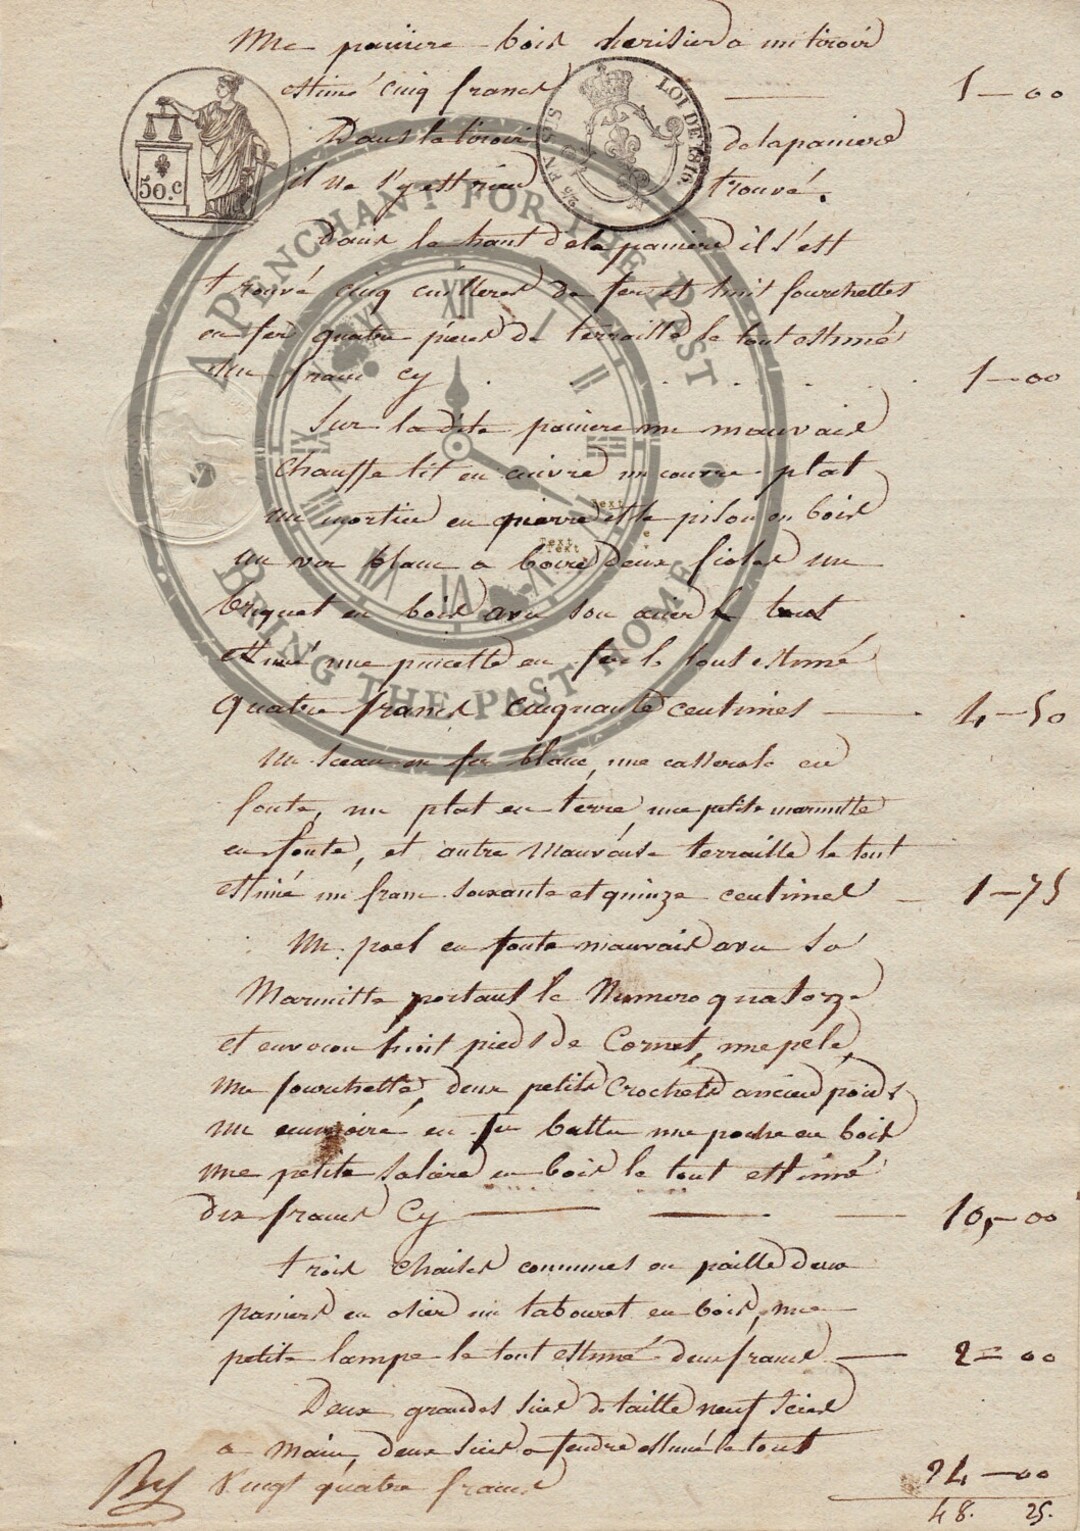 une paniere bois cerisier a un tiroir
estimé cinq francs 5—00
50.c
LOI DE 1816.
Dans le tiroir de la paniere
il ne s'y est rien trouvé.
Dans le haut de la paniere il s'est
trouvé cinq cuilleres de fer et huit fourchettes
en fer quatre pieces de terraille le tout estimé
un franc cy 1—00
Sur la dite paniere un mauvais
chauffe lit en cuivre un couvre plat
un mortier en pierre et le pilon en bois
un ver blanc a boire deux fioles un
briquet en bois avec son acier le tout
estimé une pincette en fer le tout estimé
quatre francs cinquante centimes — 4—50
un sceau en fer blanc, une casserole en
fonte, un plat en terre, une petite marmitte
en fonte, et autre mauvaise terraille le tout
estimé un franc soixante et quinze centimes — 1—75
un poel en fonte mauvais avec sa
Marmitte portant le Numero quatorze
et environ huit pieds de Cornet, une pele,
une fourchette, deux petits Crochets ancien poids
une en fer battu une poche en bois
une petite salière en bois le tout estimé
dix francs Cy — 10,—00
trois chaises communes en paille deux
paniers en osier un tabouret en bois, une
petite lampe le tout estimé deux francs — 2—00
Deux grandes scies de taille neuf scies
a main, deux scies a fendre estimé le tout
vingt quatre francs 24—00
48. 25.
A PENCHANT FOR THE PAST
BRING THE PAST HOME